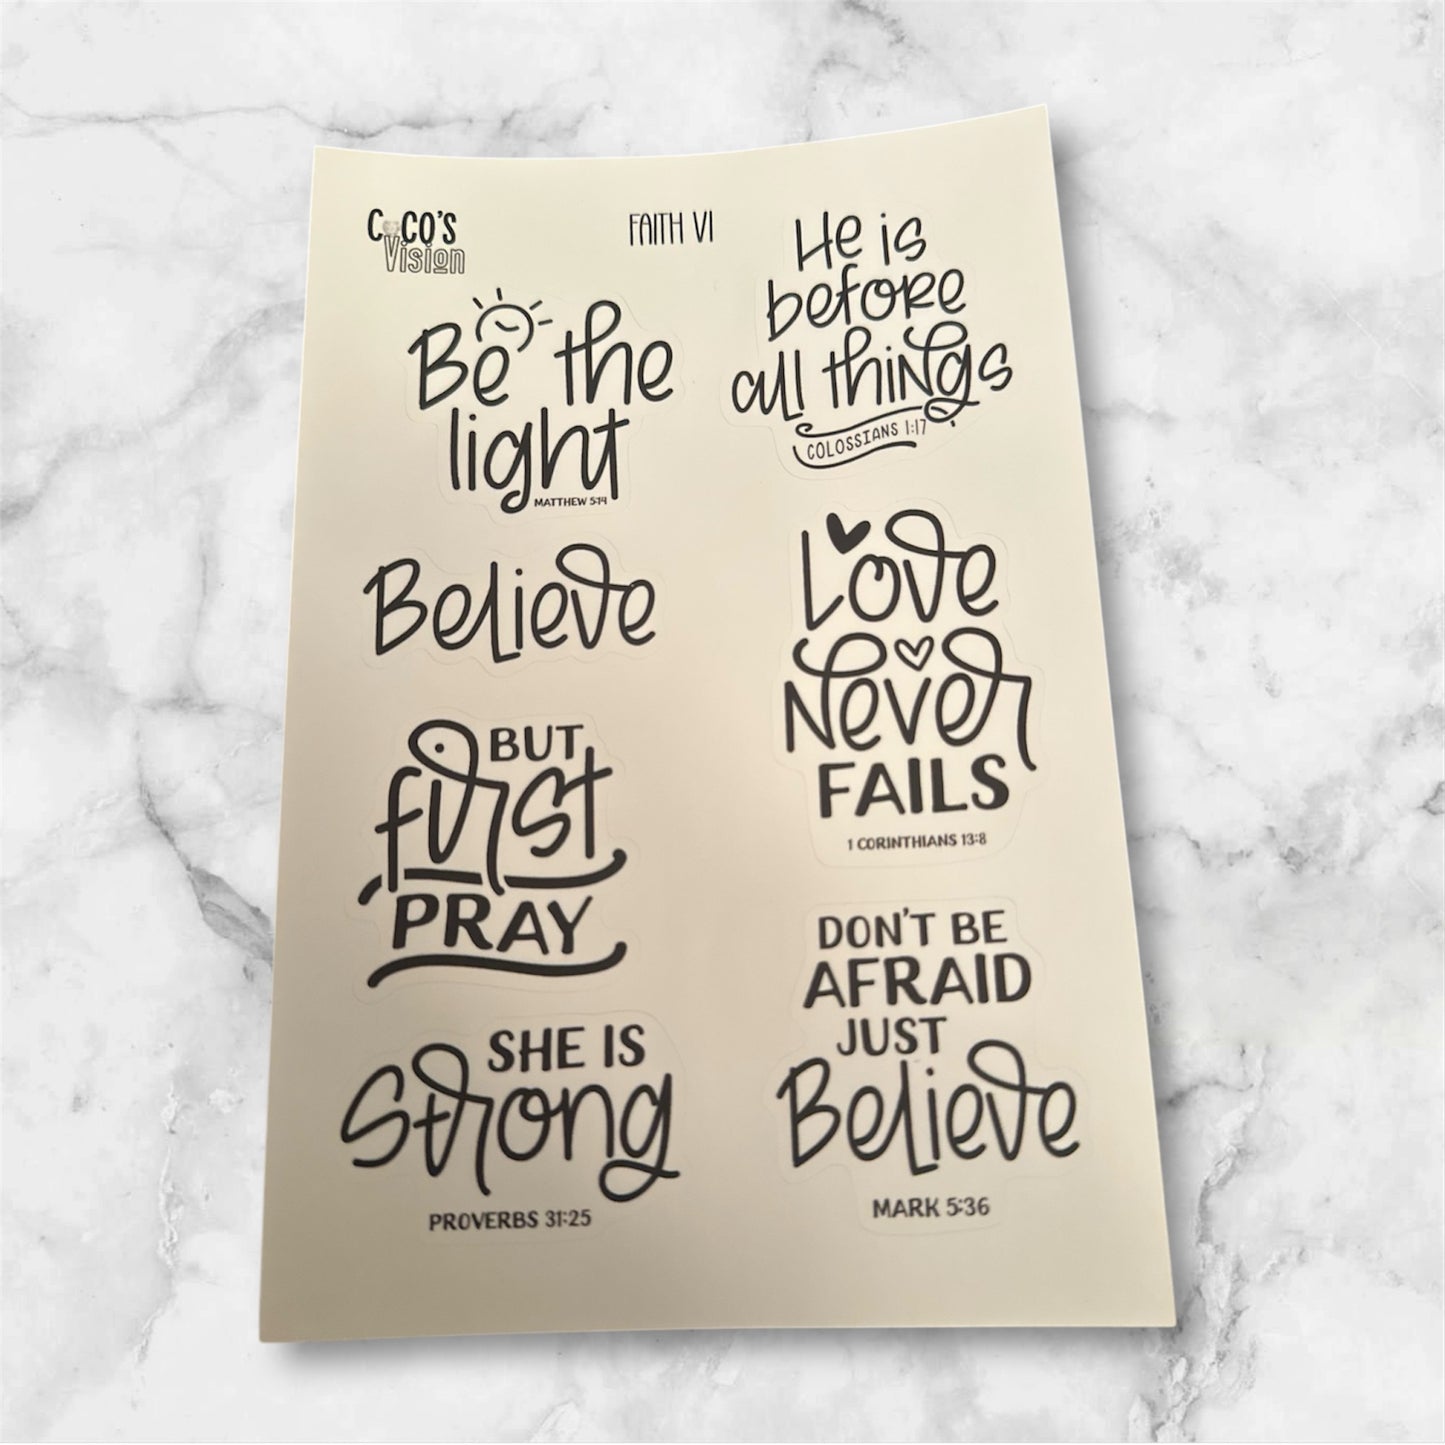 COCO'S
Vision
FAITH VI
Be the
light
MATTHEW 5:14
He is
before
all things
COLOSSIANS 1:17
Believe
Love
Never
FAILS
1 CORINTHIANS 13:8
BUT
first
PRAY
DON'T BE
AFRAID
JUST
Believe
MARK 5:36
SHE IS
Strong
PROVERBS 31:25